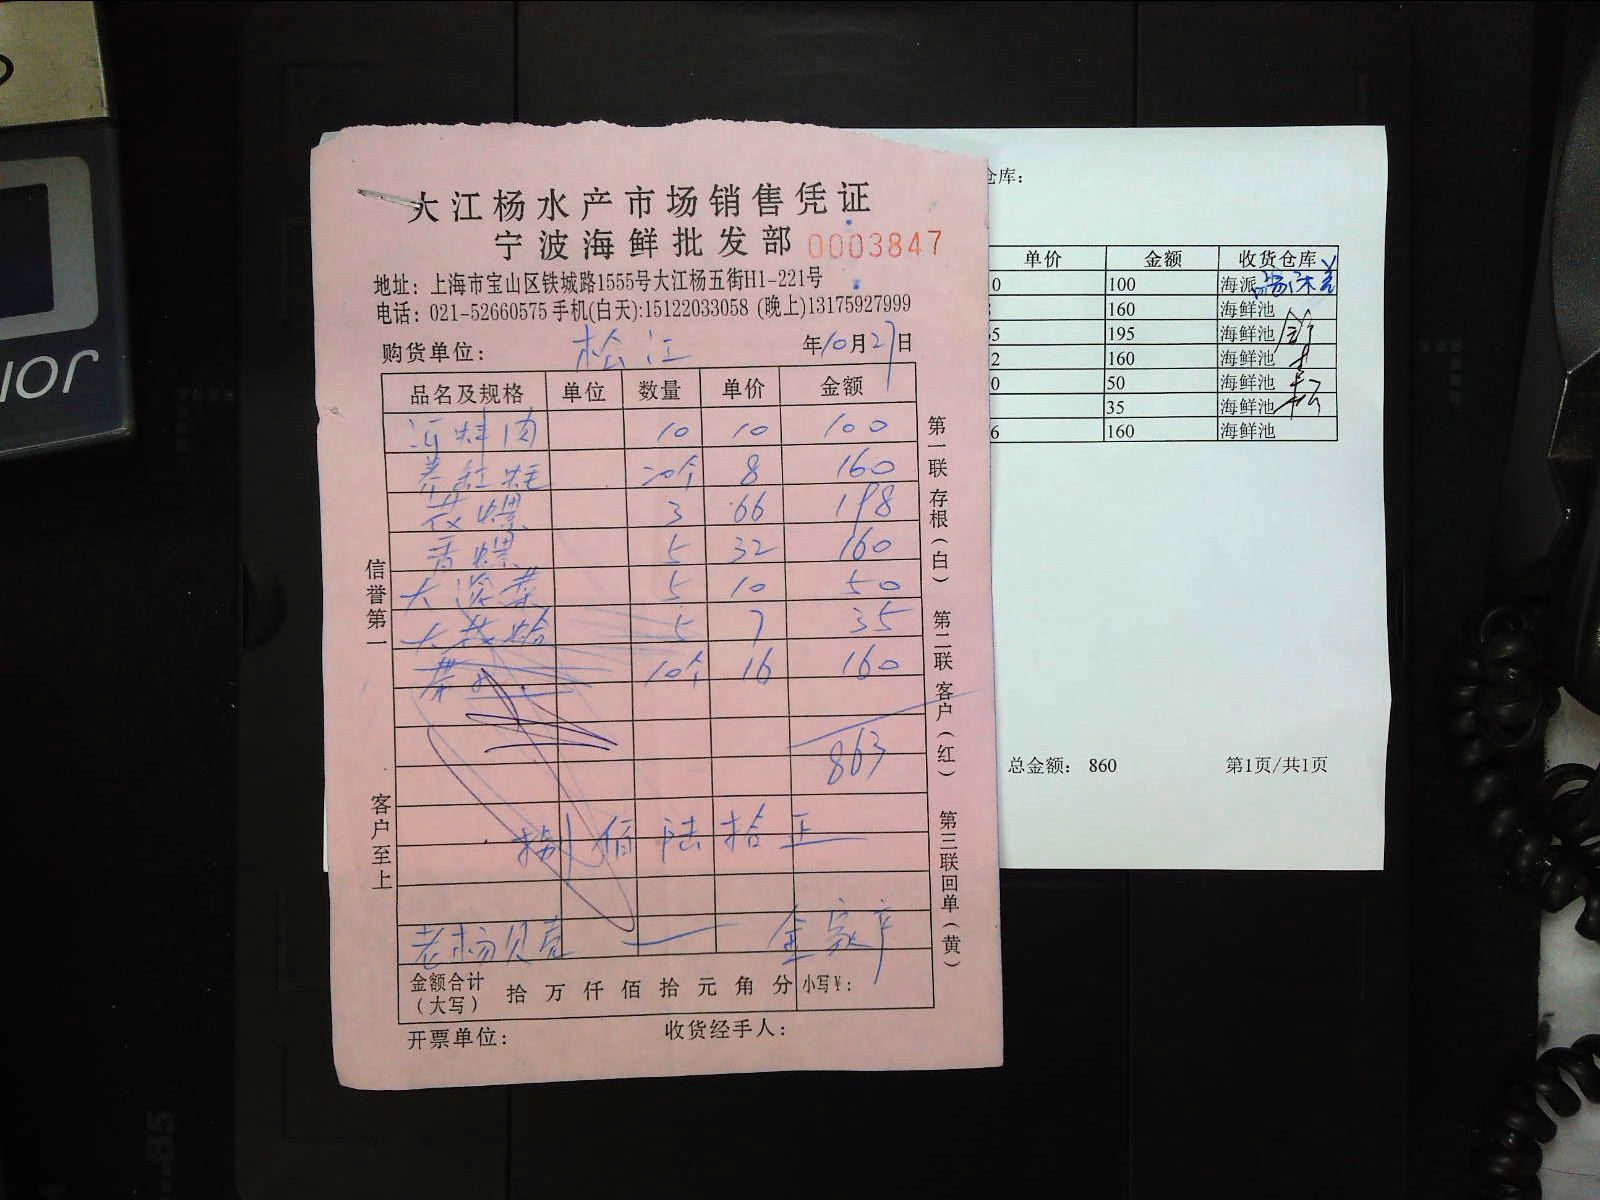 大江杨水产市场销售凭证
宁波海鲜批发部 0003847
地址：上海市宝山区铁城路1555号大江杨五街H1-221号
电话：021-52660575 手机(白天):15122033058 (晚上)13175927999
购货单位： 松江 年10月27日
品名及规格 单位 数量 单价 金额
10 10 100
20个 8 160
花螺 3 66 198
香螺 5 32 160
大 5 10 50
大 蛤 5 7 35
10个 16 160
863
捌佰陆拾正
老杨贝壳 — 金家产
金额合计（大写） 拾 万 仟 佰 拾 元 角 分 小写¥：
开票单位： 收货经手人：
信誉第一
客户至上
第一联存根（白） 第二联客户（红） 第三联回单（黄）
仓库：
单价 金额 收货仓库
0 100 海派
160 海鲜池
5 195 海鲜池
2 160 海鲜池
0 50 海鲜池
35 海鲜池
6 160 海鲜池
总金额： 860 第1页/共1页
JOR